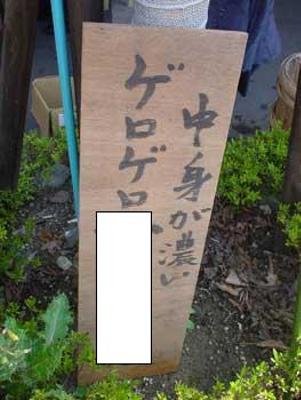 中身が濃い
ゲロゲロ